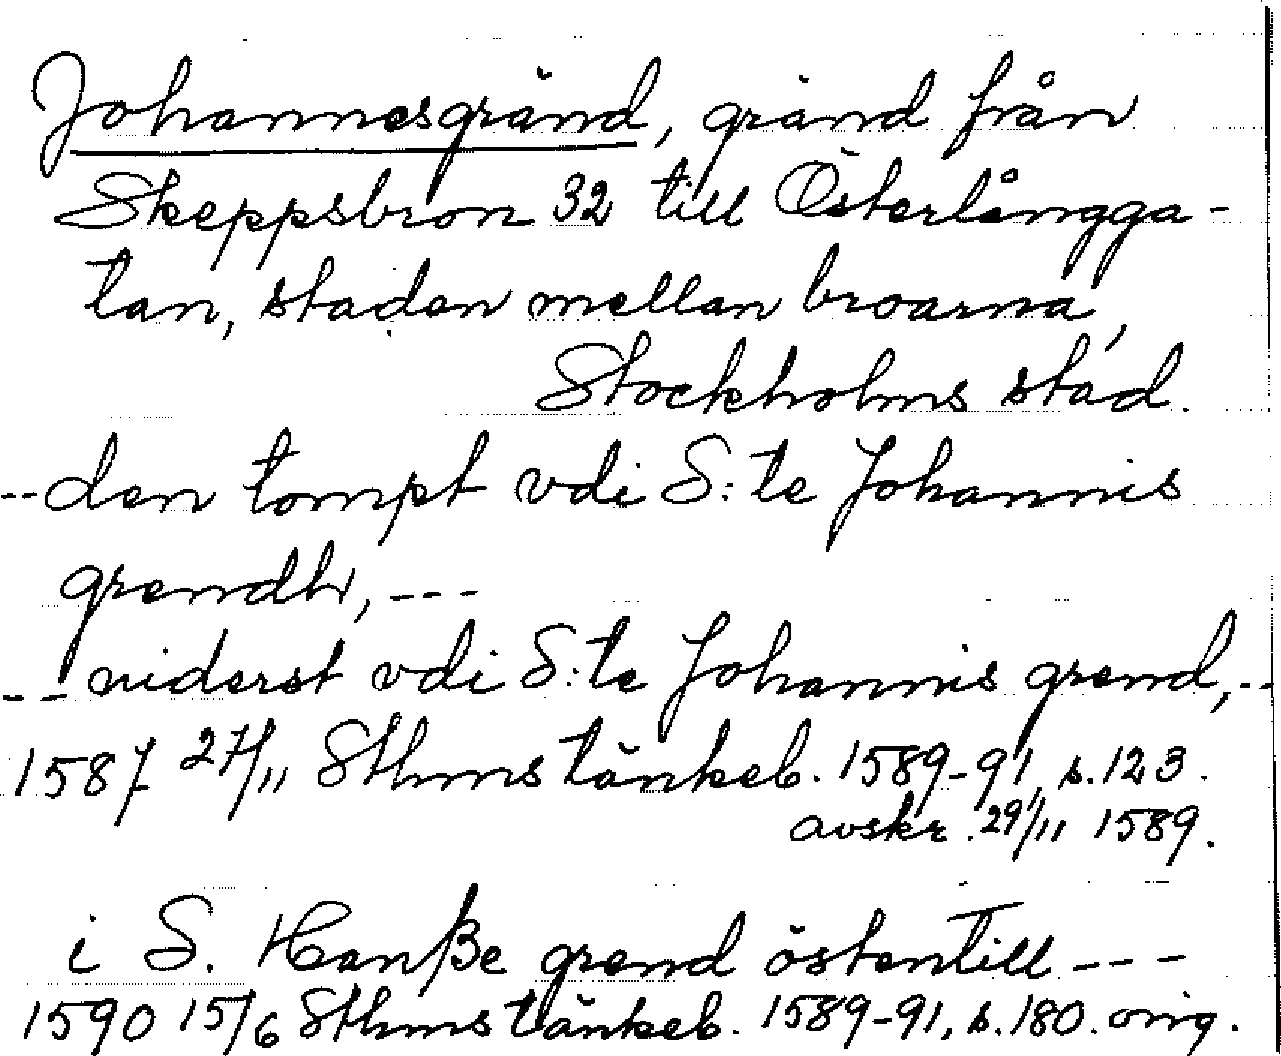 Johannesgränd, gränd från
Skeppsbron 32 till Österlångga-
tan, staden mellan broarna,
Stockholms stad.
--den tompt vdi S:te Johannis
grendh,---
-- niderst vdi S:te Johannis grend,--
1587 27/11 Sthms tänkeb. 1589-91, s.123.
avskr. 29/11 1589.
i S. Hanße grend östentill---
1590 15/6 Sthms tänkeb. 1589-91, s.180. orig.